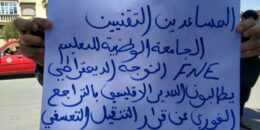 المساعدين التقنيين
الجامعة الوطنية للتعليم
FNE التوجه الديمقراطي
يطالبون المدير الإقليمي بالتراجع
الفوري عن قرار التنقيل التعسفي